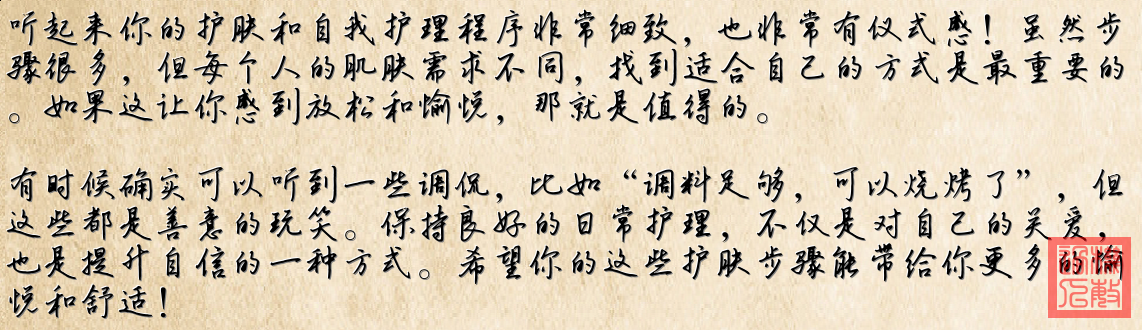 听起来你的护肤和自我护理程序非常细致，也非常有仪式感！虽然步
骤很多，但每个人的肌肤需求不同，找到适合自己的方式是最重要的
。如果这让你感到放松和愉悦，那就是值得的。
有时候确实可以听到一些调侃，比如“调料足够，可以烧烤了”，但
这些都是善意的玩笑。保持良好的日常护理，不仅是对自己的关爱，
也是提升自信的一种方式。希望你的这些护肤步骤能带给你更多的愉
悦和舒适！